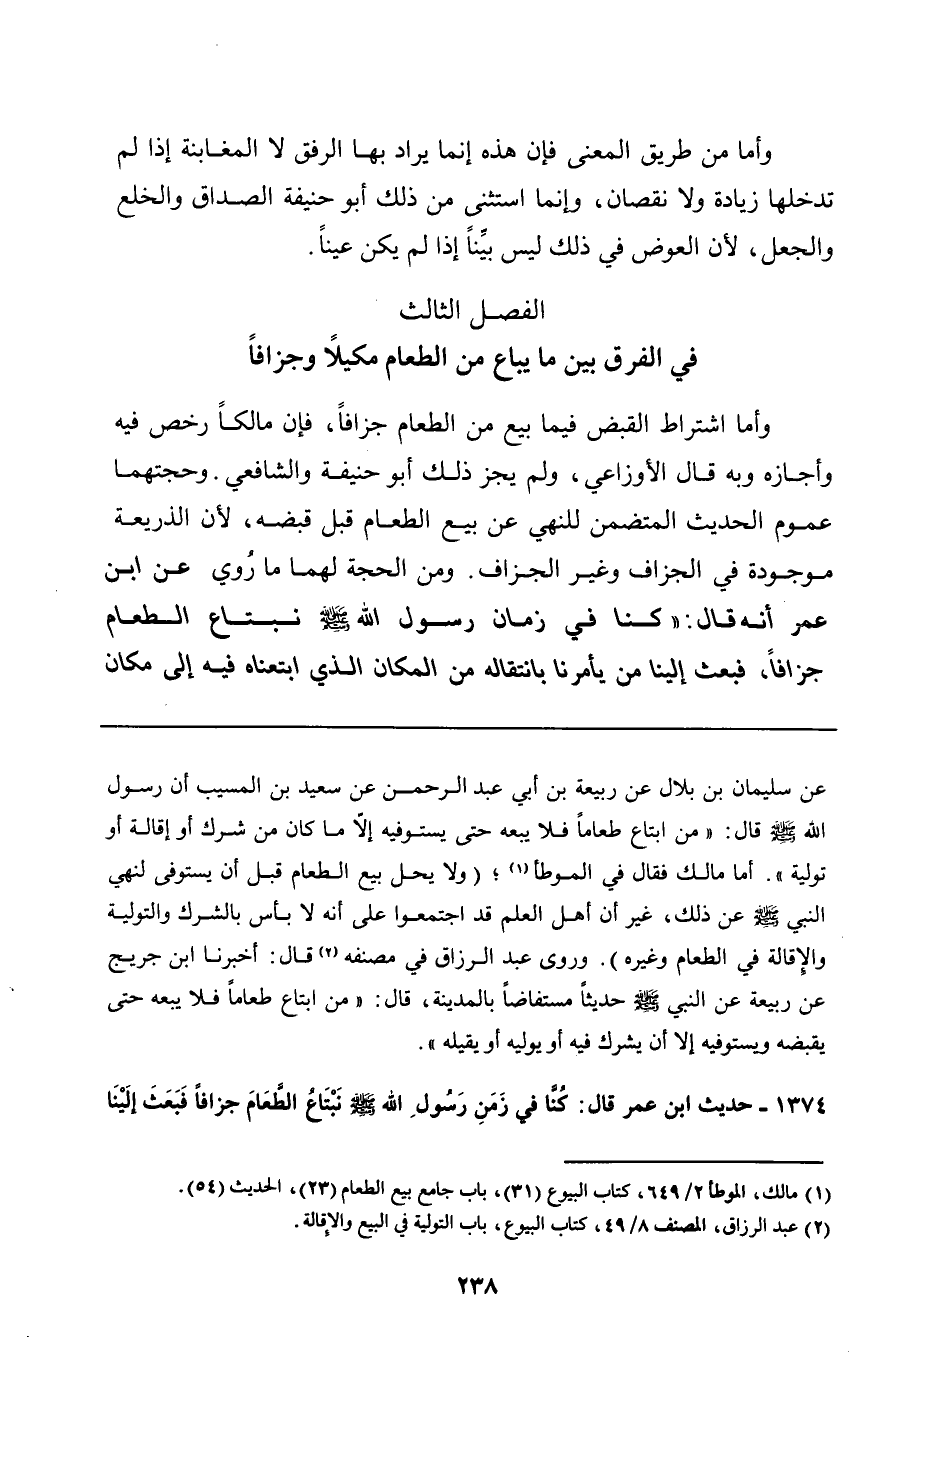 وأما من طريق المعنى فإن هذه إنما يراد بها الرفق لا المغابنة إذا لم
تدخلها زيادة ولا نقصان، وإنما استثنى من ذلك أبو حنيفة الصداق والخلع
والجعل، لأن العوض في ذلك ليس بيِّناً إذا لم يكن عيناً.
الفصل الثالث
في الفرق بين ما يباع من الطعام مكيلاً وجزافاً
وأما اشتراط القبض فيما بيع من الطعام جزافاً، فإن مالكاً رخص فيه
وأجازه وبه قال الأوزاعي، ولم يجز ذلك أبو حنيفة والشافعي. وحجتهما
عموم الحديث المتضمن للنهي عن بيع الطعام قبل قبضه، لأن الذريعة
موجودة في الجزاف وغير الجزاف. ومن الحجة لهما ما رُوي عن ابن
عمر أنه قال: « كنا في زمان رسول الله ﷺ نبتاع الطعام
جزافاً، فبعث إلينا من يأمرنا بانتقاله من المكان الذي ابتعناه فيه إلى مكان
عن سليمان بن بلال عن ربيعة بن أبي عبد الرحمن عن سعيد بن المسيب أن رسول
الله ﷺ قال: « من ابتاع طعاماً فلا يبعه حتى يستوفيه إلّا ما كان من شرك أو إقالة أو
تولية ». أما مالك فقال في الموطأ(١) ؛ ( ولا يحل بيع الطعام قبل أن يستوفى لنهي
النبي ﷺ عن ذلك، غير أن أهل العلم قد اجتمعوا على أنه لا بأس بالشرك والتولية
والإقالة في الطعام وغيره ). وروى عبد الرزاق في مصنفه(٢) قال: أخبرنا ابن جريج
عن ربيعة عن النبي ﷺ حديثاً مستفاضاً بالمدينة، قال: « من ابتاع طعاماً فلا يبعه حتى
يقبضه ويستوفيه إلا أن يشرك فيه أو يوليه أو يقيله ».
١٣٧٤ - حديث ابن عمر قال: كُنَّا في زَمَنِ رَسُولِ الله ﷺ نَبْتَاعُ الطَّعَامَ جزافاً فَبَعَثَ إلَيْنَا
(١) مالك، الموطأ ٢/ ٦٤٩، كتاب البيوع (٣١)، باب جامع بيع الطعام (٢٣)، الحديث (٥٤).
(٢) عبد الرزاق، المصنف ٨/ ٤٩، كتاب البيوع، باب التولية في البيع والإقالة.
٢٣٨